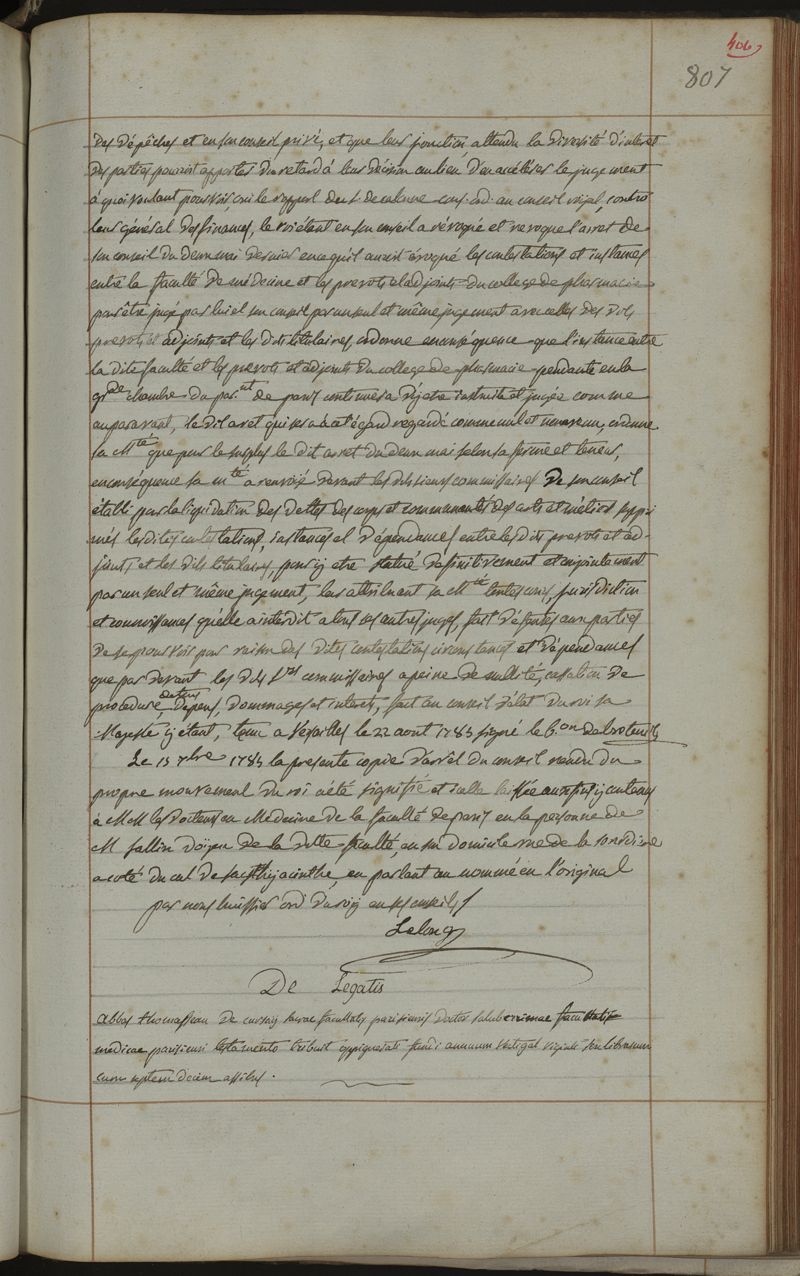 406
807
des dépêches et en son conseil privé, et que leur jonction attendu la diversité d'interet
des parties pourroit apporter du retard à leur décision au lieu d'en accélérer le jugement
a quoi voulant pourvoir, oui le rapport du s. de calonne cons. ord. au conseil royal, contro
leur général des finances, le roi étant en son conseil a révoqué et revoque l'arret de
son conseil du deux mai dernier en ce qu'il auroit évoqué les contestations et instances
entre la faculté de médecine et les prevots et adjoints du college de pharmacie
pour être jugé par lui et son conseil par un seul et même jugement avec celles des dits
prevots et adjoints et les dits titulaires, ordonne en conséquence que l'instance entre
la dite faculté et les prevots et adjoints du college de pharmacie pendante en la
gr.de chambre du par.nt de paris continuera d'y etre instruite et jugée comme
auparavant, le dit arret qui sera a cet égard regardé comme nul et non avenu, ordonne
sa M.té que pour le surplus le dit arret du deux mai selon sa forme et teneur,
en conséquence sa m.té a renvoié devant les dits sieurs commissaires de son conseil
établi pour la liquidation des dettes des corps et communautés des arts et métiers suppri
més les dites contestations, instances et dépendances entre les dits prevots et ad-
joints et les dits titulaires, pour y etre statué definitivement et conjointement
par un seul et même jugement, leur attribuant sa M.té toutes cours, jurisdiction
et connoissances qu'elle a interdit a tous ses autres juges, fait défenses aux parties
de se pourvoir pour raison des dites contestations circonstances et dépendances
que par devant les dits s.rs commissaires a peine de nullité, cassation de
procedure, de tous dépens, dommages et interets, fait au conseil d'état du roi sa
Majesté y étant, tenu a Versailles le 22 aout 1785 signé le b.on de breteuil
Le 15 7bre 1785 la presente copie d'arrêt du conseil rendu du
propre mouvement du roi a été signifié et icelle laissée aux fins y contenus
à MM les Docteurs en Medecine de la faculté de paris en la personne de
M Sallin doÿen de la dite faculté, en son domicile rue de la
a coté du cul de sac st hyacinthe, en parlant au nommé en l'original
par nous huissier ord. du roy en ses conseils
Lelong
De Legatis
abbas thomasseau De cursay sacrae facultatis parisiensis doctor saluberrimae facultati
medicae parisiensi testamento tribuit oppignorati fundi annuum vectigal viginti sex librarum
cum septem decim assibus.